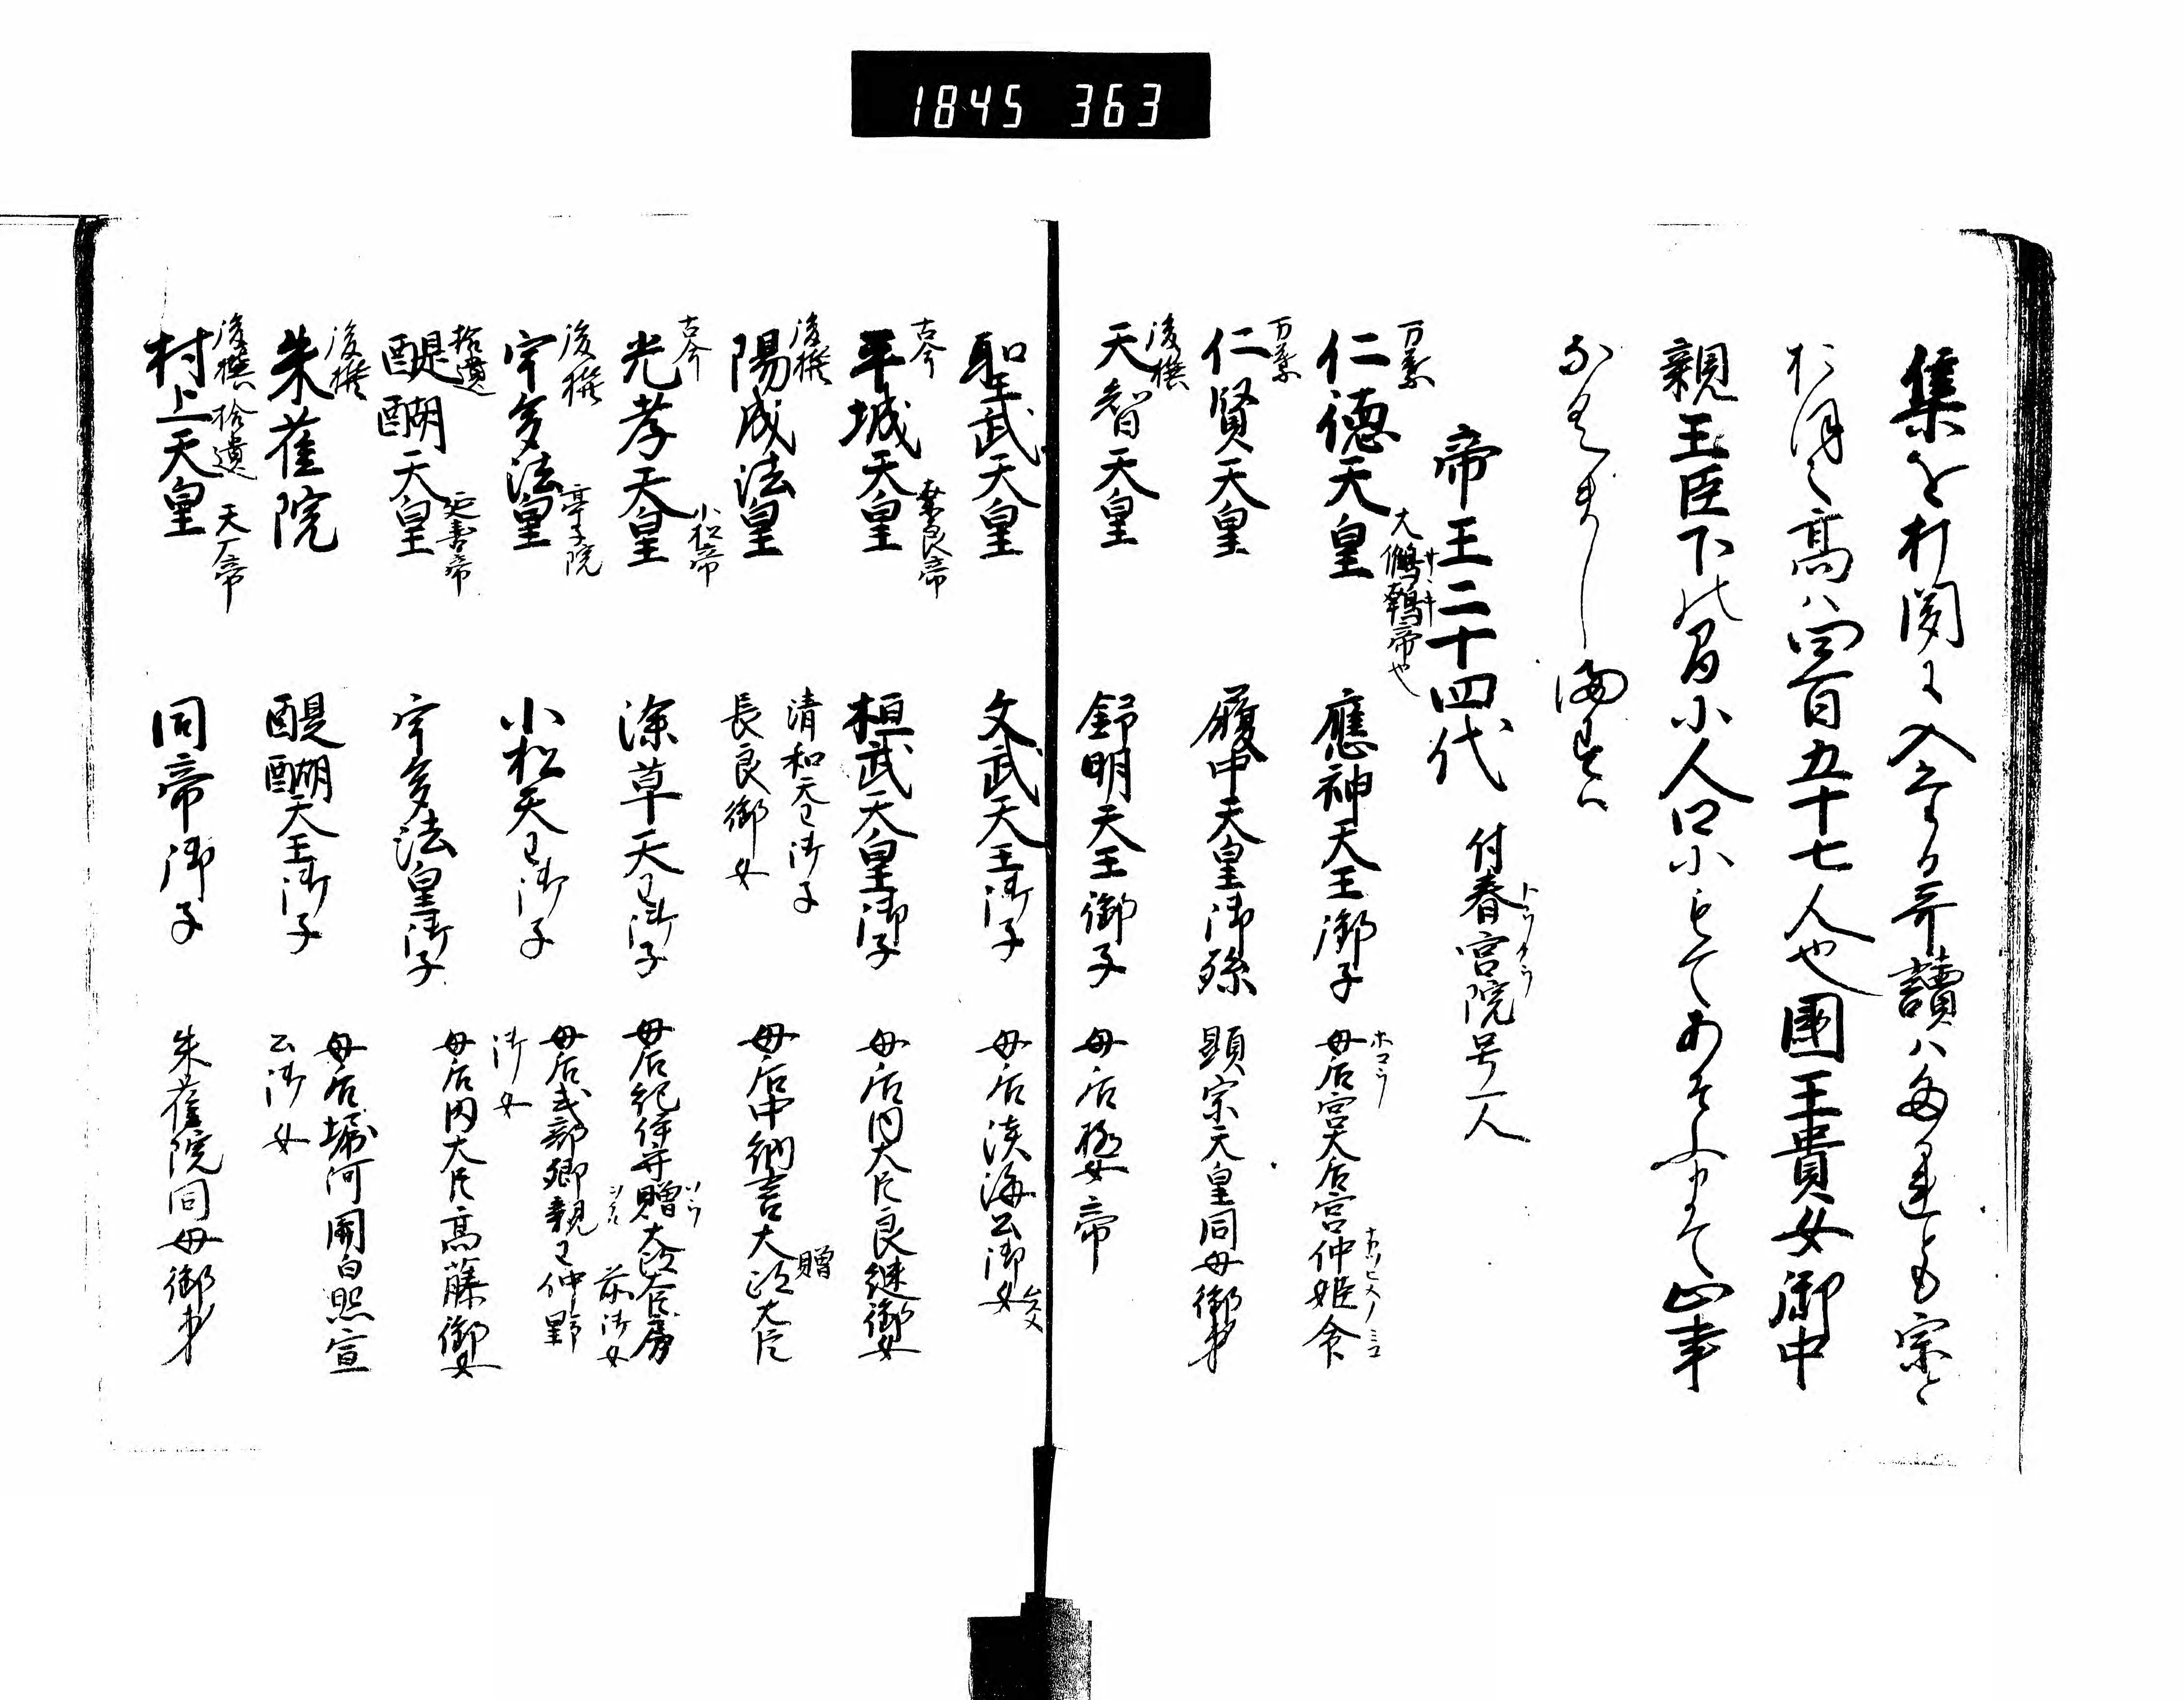 1845 363
集を打開に入たる哥讀ハ多連とも宗と
高ハ四百五十七人也國王貴女御中
親王臣下
帝王二十四代 付春宮院号一人
トウクウ
万葉
仁徳天皇 大鷦鷯帝也 應神天王御子 母后宮大后宮仲姫命
サヽキ
ホコウ
ナカツヒメノミコ
万葉
仁賢天皇 履中天皇御孫 顕宗天皇同母御弟
後撰
天智天皇 舒明天王御子 母后極帝
聖武天皇 文武天王御子 母后淡海公御女
古今
平城天皇 奈良帝 桓武天皇御子 母后内大臣良継御女
後撰
陽成法皇 清和天王御子 母后中納言贈大政大臣
長良御女
古今
光孝天皇 小松帝 深草天王御子 母后紀伊守贈大政大臣房
ソウ
前御女
後撰
宇多法皇 亭子院 小松天王御子 母后式部卿親王仲野
御女
拾遺
醍醐天皇 延喜帝 宇多法皇御子 母后内大臣高藤御女
後撰
朱雀院 醍醐天王御子 母后堀河関白照宣
公御女
後撰 拾遺
村上天皇 天一帝 同帝御子 朱雀院同母御弟